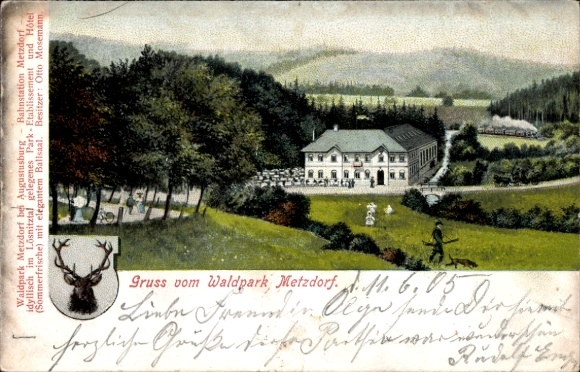 Waldpark Metzdorf bei Augustusburg – Bahnstation Metzdorf –
idyllisch im Lösnitztal gelegenes Park-Etablissement und Hôtel
(Sommerfrische) mit elegantem Ballsaal. Besitzer: Otto Mosemann
Gruss vom Waldpark Metzdorf.
d. 11. 6. 05
Liebe Freundin Olga send Dir hiermit
herzliche Grüße diese Parthie war wunderschön
Rudolf